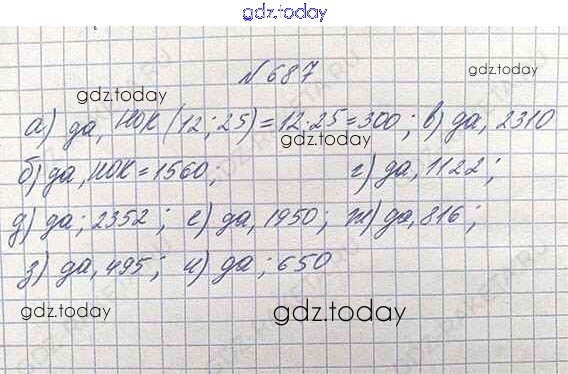 gdz.today
№ 687
gdz.today
а) да, НОК (12; 25) = 12·25 = 300; в) да, 2310
gdz.today
б) да, НОК = 1560; г) да, 1122;
д) да; 2352; е) да, 1950; ж) да, 816;
з) да, 495; и) да; 650
gdz.today gdz.today